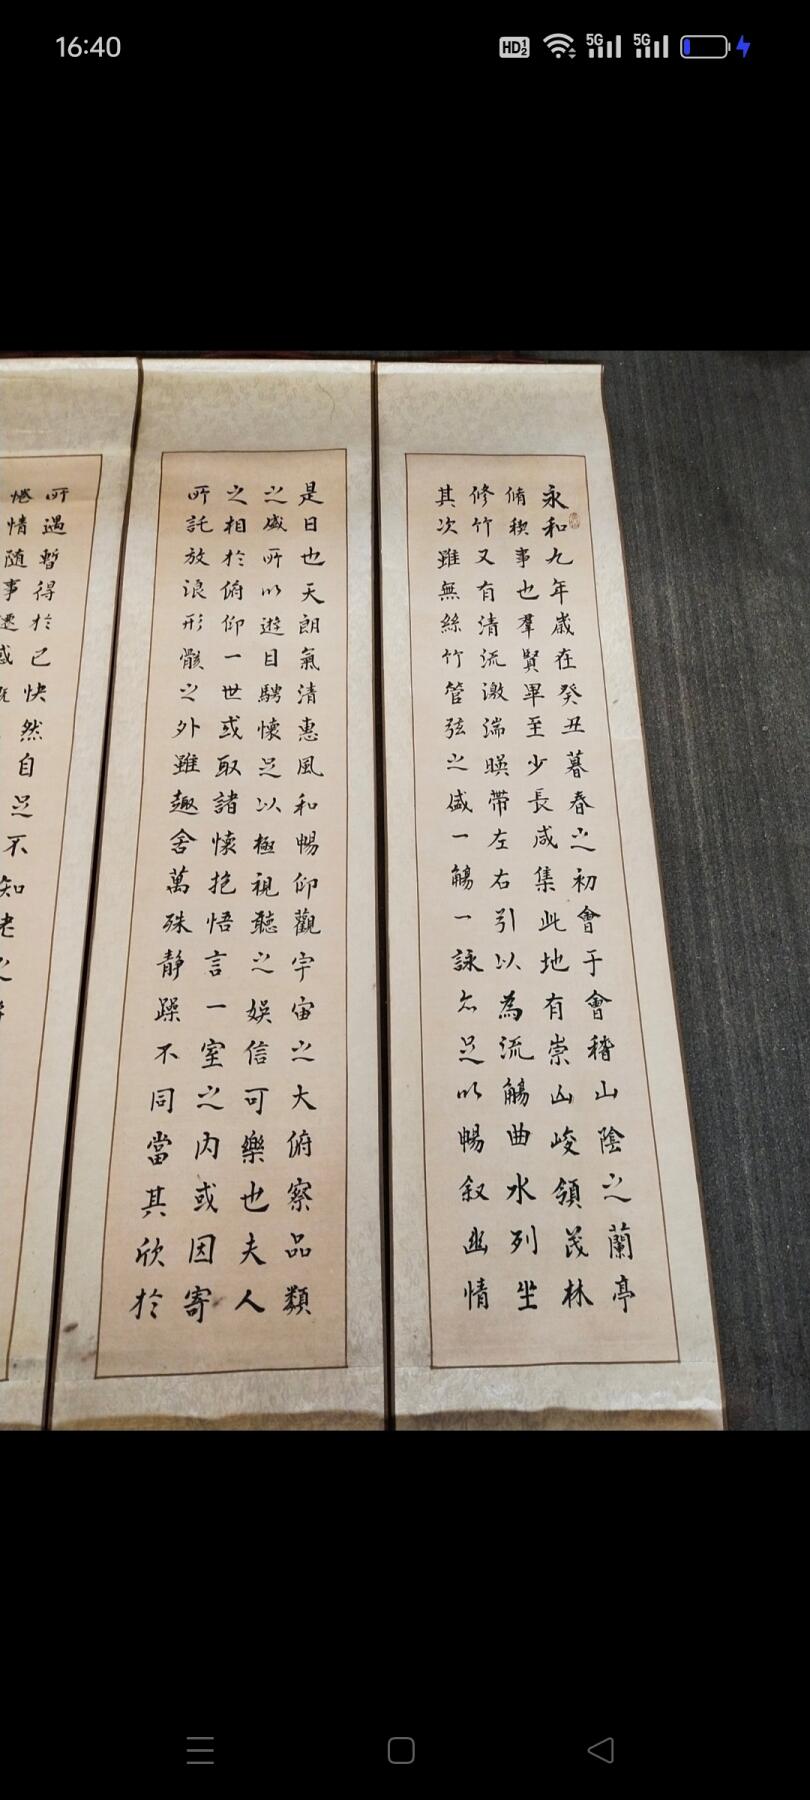 16:40
HD 5G 5G
永和九年歲在癸丑暮春之初會于會稽山陰之蘭亭
脩稧事也羣賢畢至少長咸集此地有崇山峻領茂林
修竹又有清流激湍暎帶左右引以為流觴曲水列坐
其次雖無絲竹管弦之盛一觴一詠亦足以暢叙幽情
是日也天朗氣清惠風和暢仰觀宇宙之大俯察品類
之盛所以遊目騁懷足以極視聽之娛信可樂也夫人
之相於俯仰一世或取諸懷抱悟言一室之内或因寄
所託放浪形骸之外雖趣舍萬殊静躁不同當其欣於
所遇暫得於己快然自足不知老之
惓情随事遷感